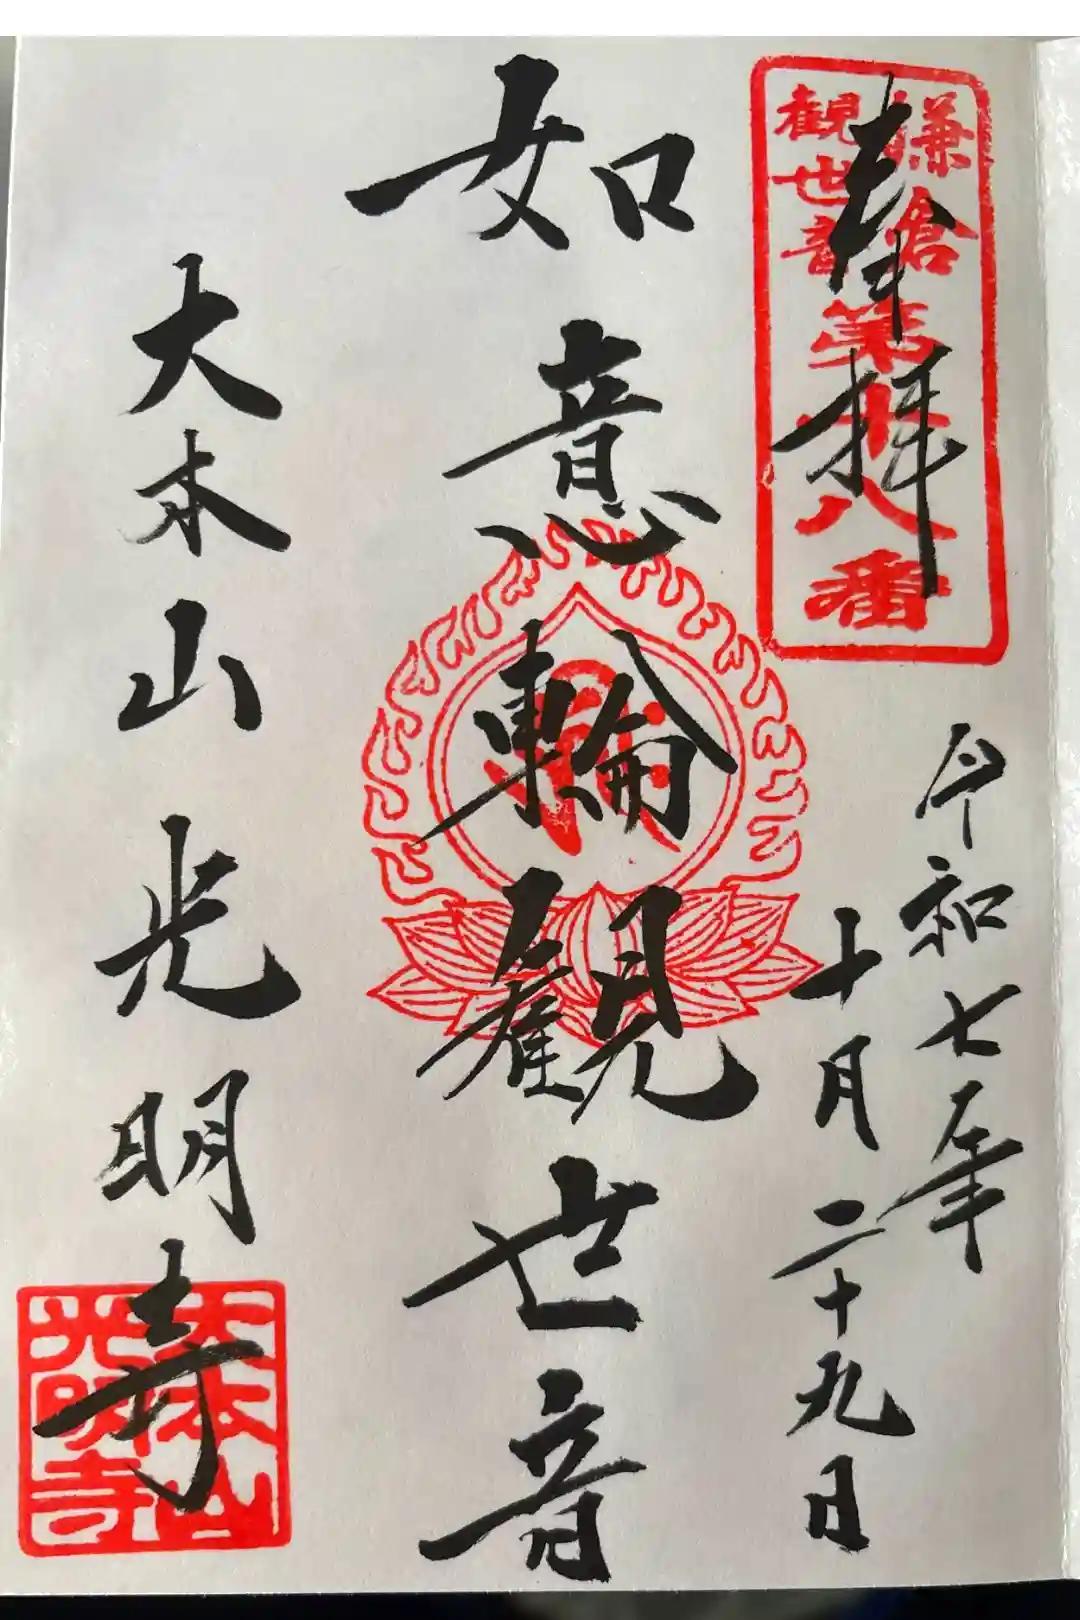 奉拝
鎌倉
観世音
第十八番
令和七年
十月二十九日
如意輪觀世音
大本山光明寺
大本山
光明寺